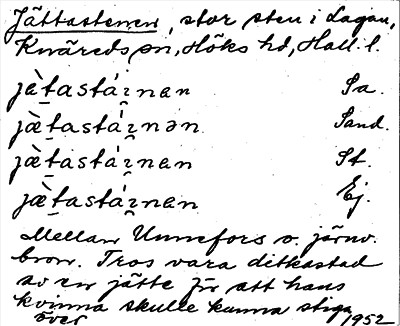 Jättastenen, stor sten i Lagan,
Knäreds sn, Höks hd, Hall. l.
jæ̀t̠astái̯nan Sa.
jæ̀t̠astái̯nən Sand.
jæ̀t̠astái̯nan St.
jæ̀t̠astái̯nan Ej.
Mellan Unnefors o. järnv.
bron. Tros vara ditkastad
av en jätte för att hans
kvinna skulle kunna stiga
över 1952